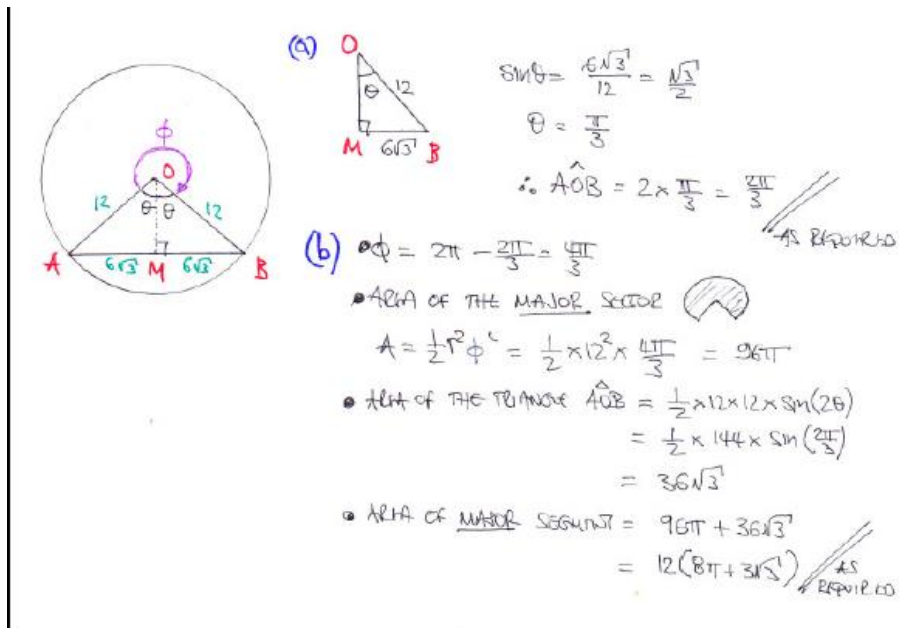 φ
O
12
θ θ
12
A
6√3
M
6√3
B
(a)
O
θ
12
M
6√3
B
sinθ = 6√3/12 = √3/2
θ = π/3
∴ AÔB = 2 × π/3 = 2π/3
AS REQUIRED
(b) • φ = 2π − 2π/3 = 4π/3
• AREA OF THE MAJOR SECTOR
A = ½r²φᶜ = ½ × 12² × 4π/3 = 96π
• AREA OF THE TRIANGLE AÔB = ½ × 12 × 12 × sin(2θ)
= ½ × 144 × sin(2π/3)
= 36√3
• AREA OF MAJOR SEGMENT = 96π + 36√3
= 12(8π + 3√3)
AS
REQUIRED